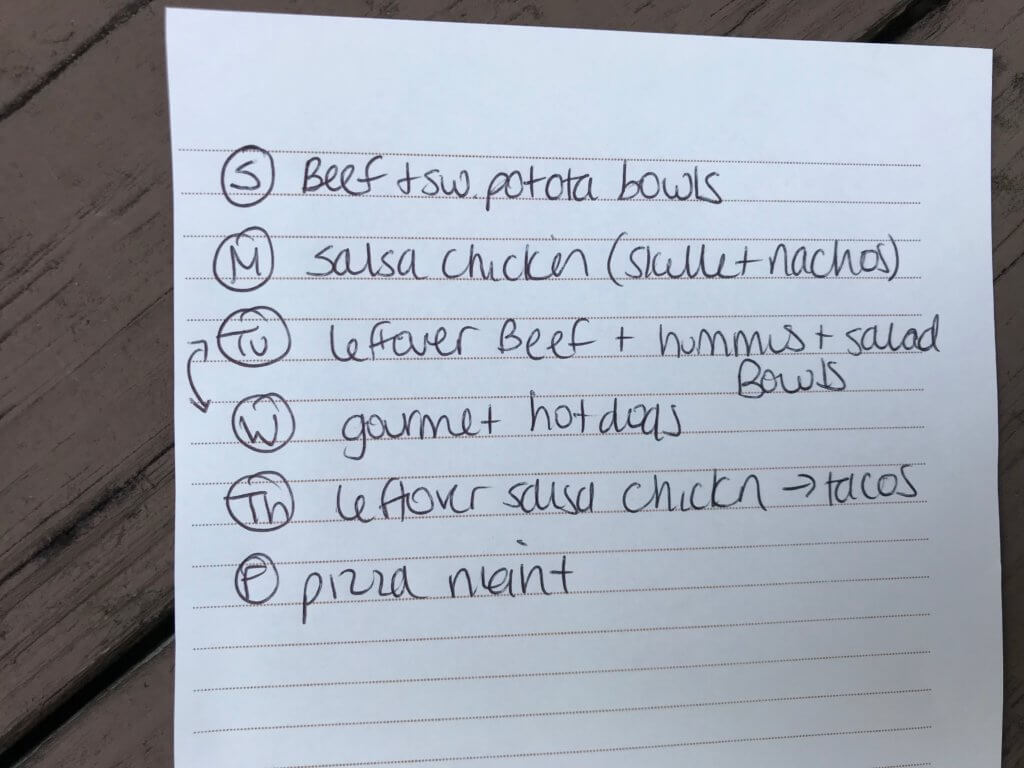 S Beef + sw. potota bowls
M salsa chicken (skillet nachos)
Tu leftover Beef + hummus + salad
Bowls
W gourmet hotdogs
Th leftover salsa chickn → tacos
F pizza night